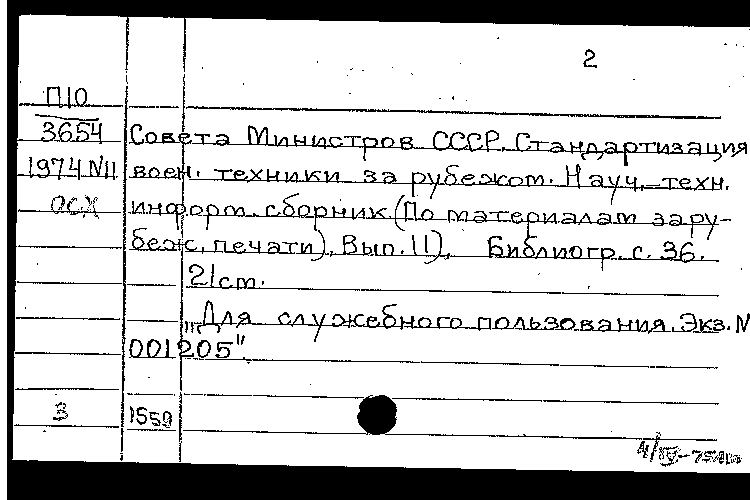 2
П10
3654 Совета Министров СССР. Стандартизация
1974 N11 воен. техники за рубежом. Науч.-техн.
осх информ. сборник (По материалам зару-
беж. печати). Вып. 11). Библиогр. с. 36.
21cm.
„Для служебного пользования. Экз. N
001205".
3 1559